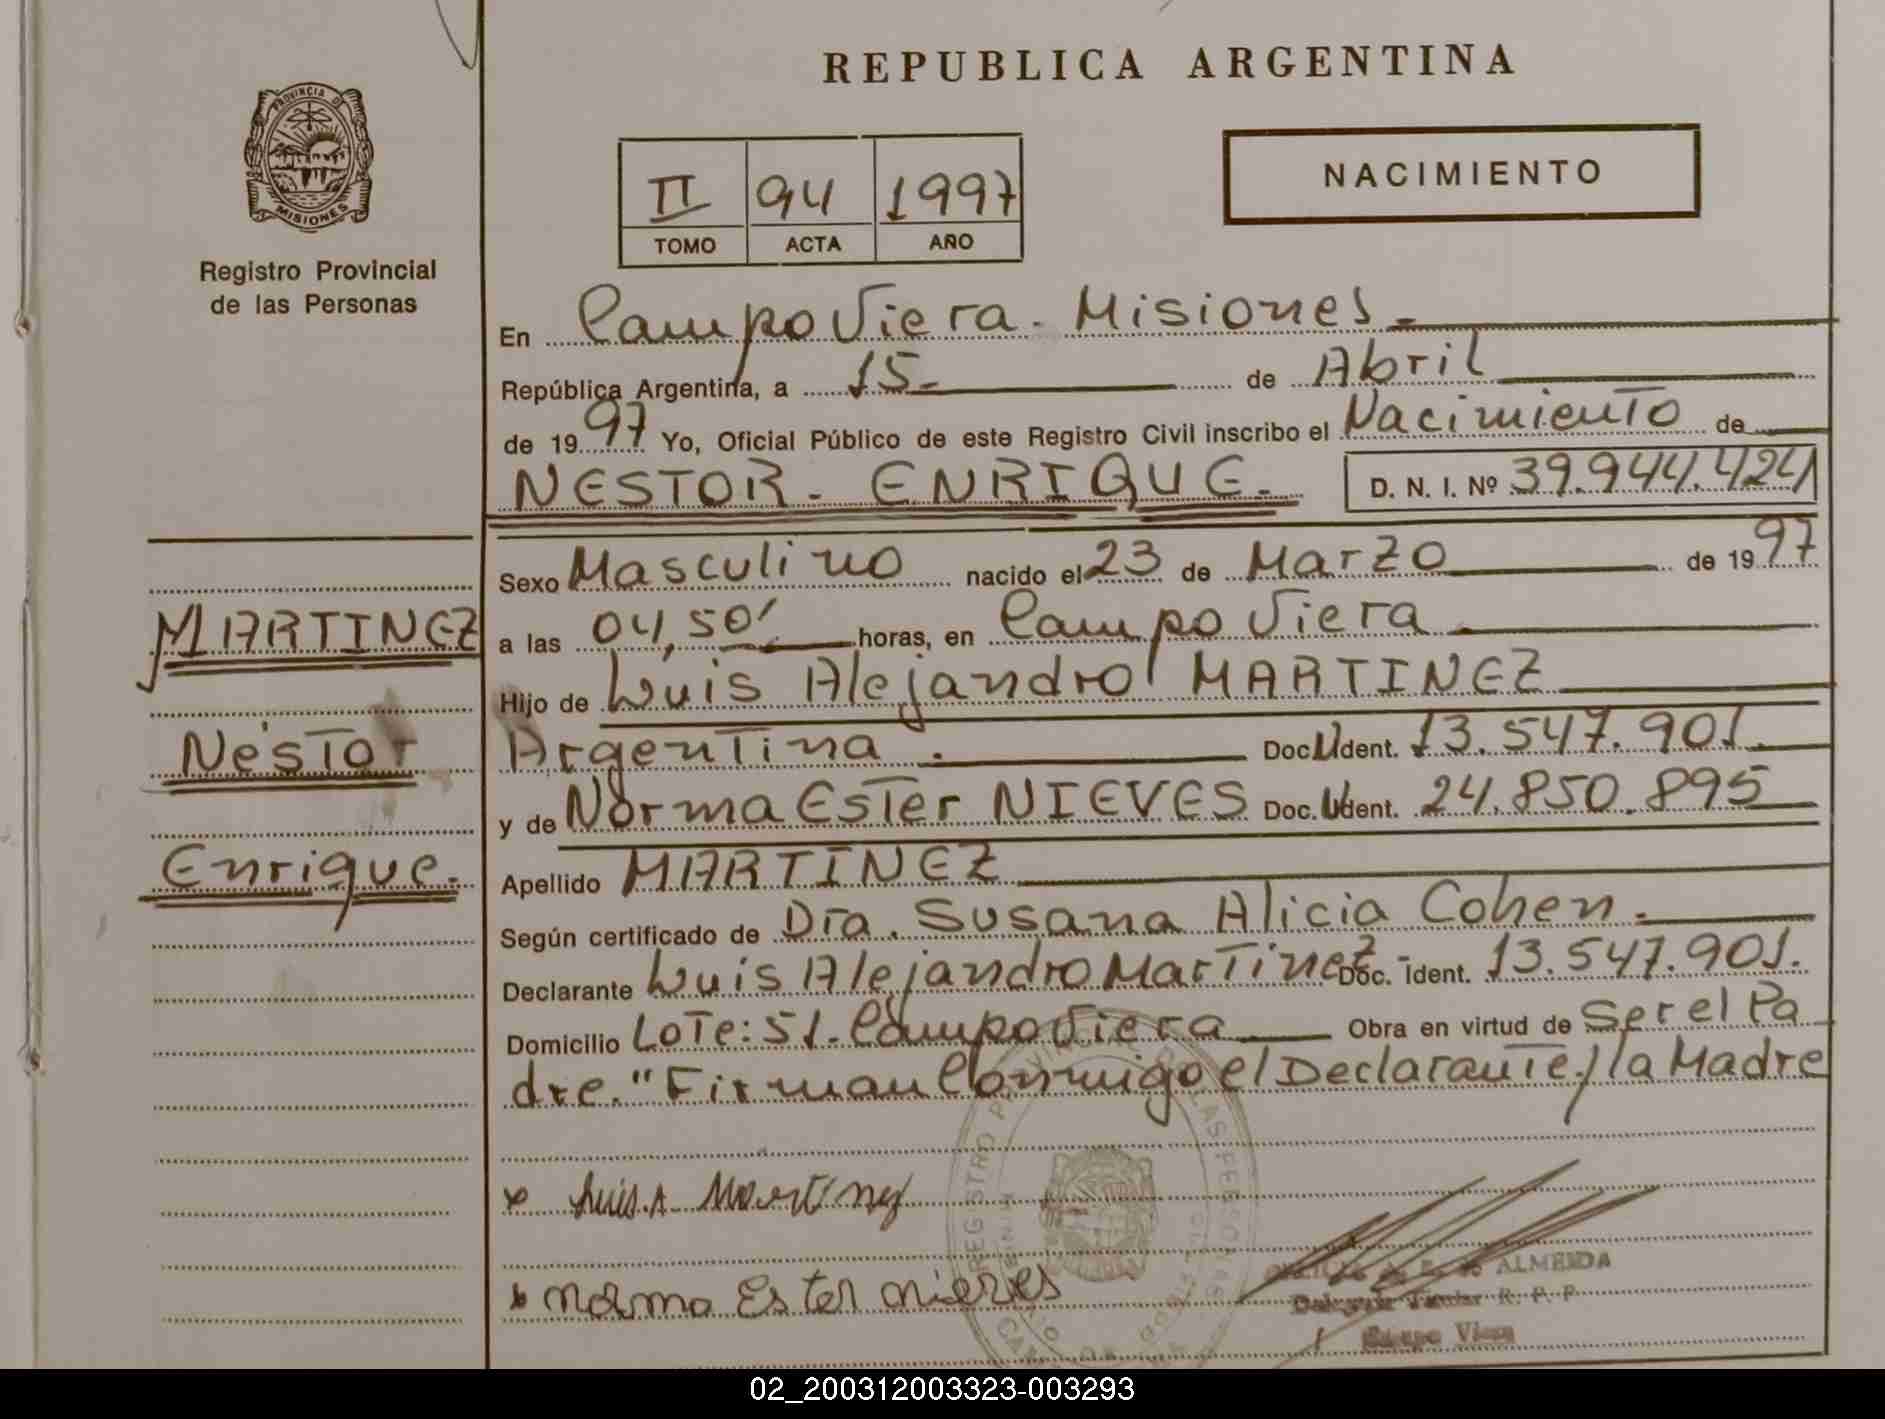 REPUBLICA ARGENTINA
PROVINCIA DE
MISIONES
Registro Provincial
de las Personas
II 94 1997
TOMO ACTA AÑO
NACIMIENTO
En Campo Viera - Misiones.
República Argentina, a 15 de Abril
de 1997 Yo, Oficial Público de este Registro Civil inscribo el Nacimiento de
NESTOR - ENRIQUE. D. N. I. Nº 39.944.424
Sexo Masculino nacido el 23 de Marzo de 1997
MARTINEZ
a las 04,50' horas, en Campo Viera
Hijo de Luis Alejandro MARTINEZ
Néstor
Argentina. Doc. Ident. 13.547.901.
y de Norma Ester NIEVES Doc. Ident. 24.850.895
Enrique.
Apellido MARTINEZ
Según certificado de Dra. Susana Alicia Cohen.
Declarante Luis Alejandro Martinez Doc. Ident. 13.547.901.
Domicilio Lote: 51. Campo Viera Obra en virtud de Ser el Pa
dre." Firman Conmigo el Declarante y la Madre
x Luis. A. Martinez
x Norma Ester Nieves
ALMEIDA
Titular R. P. P
Campo Viera
02_200312003323-003293